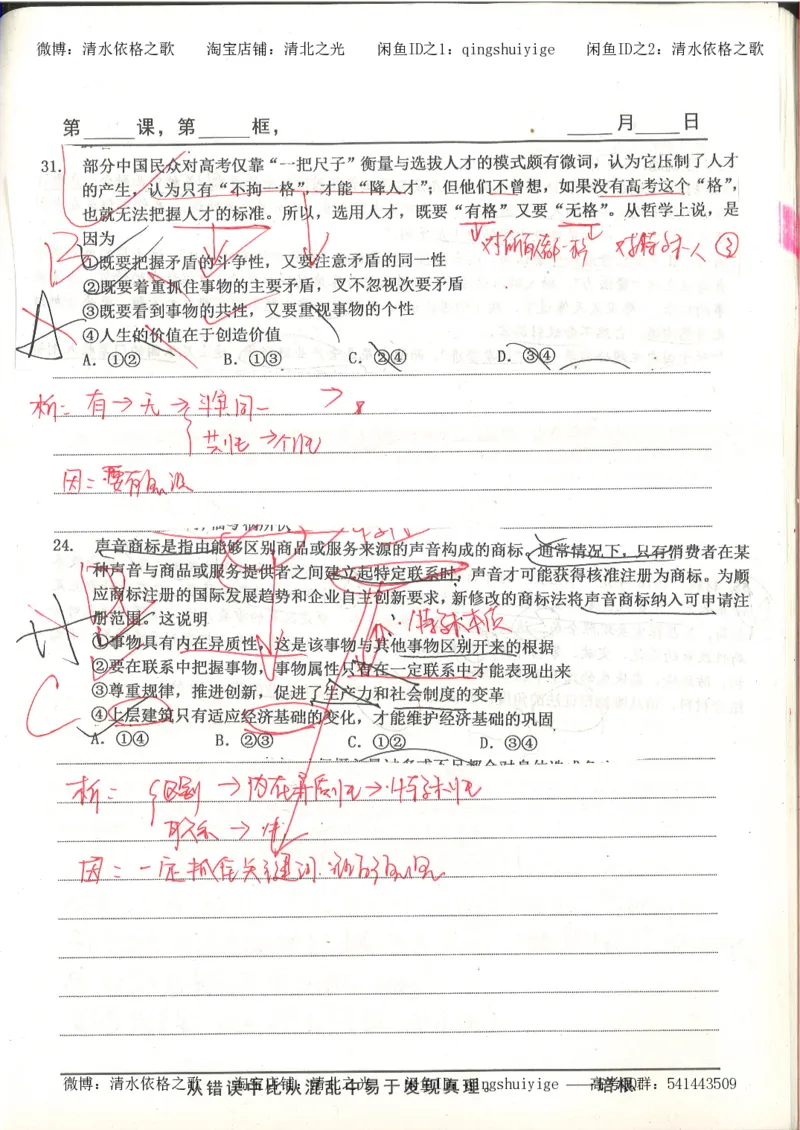 微博：清水依格之歌 淘宝店铺：清北之光 闲鱼ID之1：qingshuiyige 闲鱼ID之2：清水依格之歌
第____课，第____框， ____月____日
31. 部分中国民众对高考仅靠“一把尺子”衡量与选拔人才的模式颇有微词，认为它压制了人才
的产生，认为只有“不拘一格”，才能“降人才”；但他们不曾想，如果没有高考这个“格”，
也就无法把握人才的标准。所以，选用人才，既要“有格”又要“无格”。从哲学上说，是
因为
③
B
①既要把握矛盾的斗争性，又要注意矛盾的同一性
②既要着重抓住事物的主要矛盾，又不忽视次要矛盾
③既要看到事物的共性，又要重视事物的个性
A
④人生的价值在于创造价值
A．①② B．①③ C．②④ D．③④
析：有→无→斗争同一 →
共性→个性
因：
24. 声音商标是指由能够区别商品或服务来源的声音构成的商标，通常情况下，只有消费者在某
种声音与商品或服务提供者之间建立起特定联系时，声音才可能获得核准注册为商标。为顺
应商标注册的国际发展趋势和企业自主创新要求，新修改的商标法将声音商标纳入可申请注
册范围。这说明
∴特殊本质
①事物具有内在异质性，这是该事物与其他事物区别开来的根据
②要在联系中把握事物，事物属性只有在一定联系中才能表现出来
③尊重规律，推进创新，促进了生产力和社会制度的变革
C
④上层建筑只有适应经济基础的变化，才能维护经济基础的巩固
A．①④ B．②③ C．①② D．③④
析：区别→内在异质性→特殊性
联系→
因：一定抓住关键词
从错误中比从混乱中易于发现真理。——培根
微博：清水依格之歌 淘宝店铺：清北之光 闲鱼ID：qingshuiyige 高考QQ群：541443509